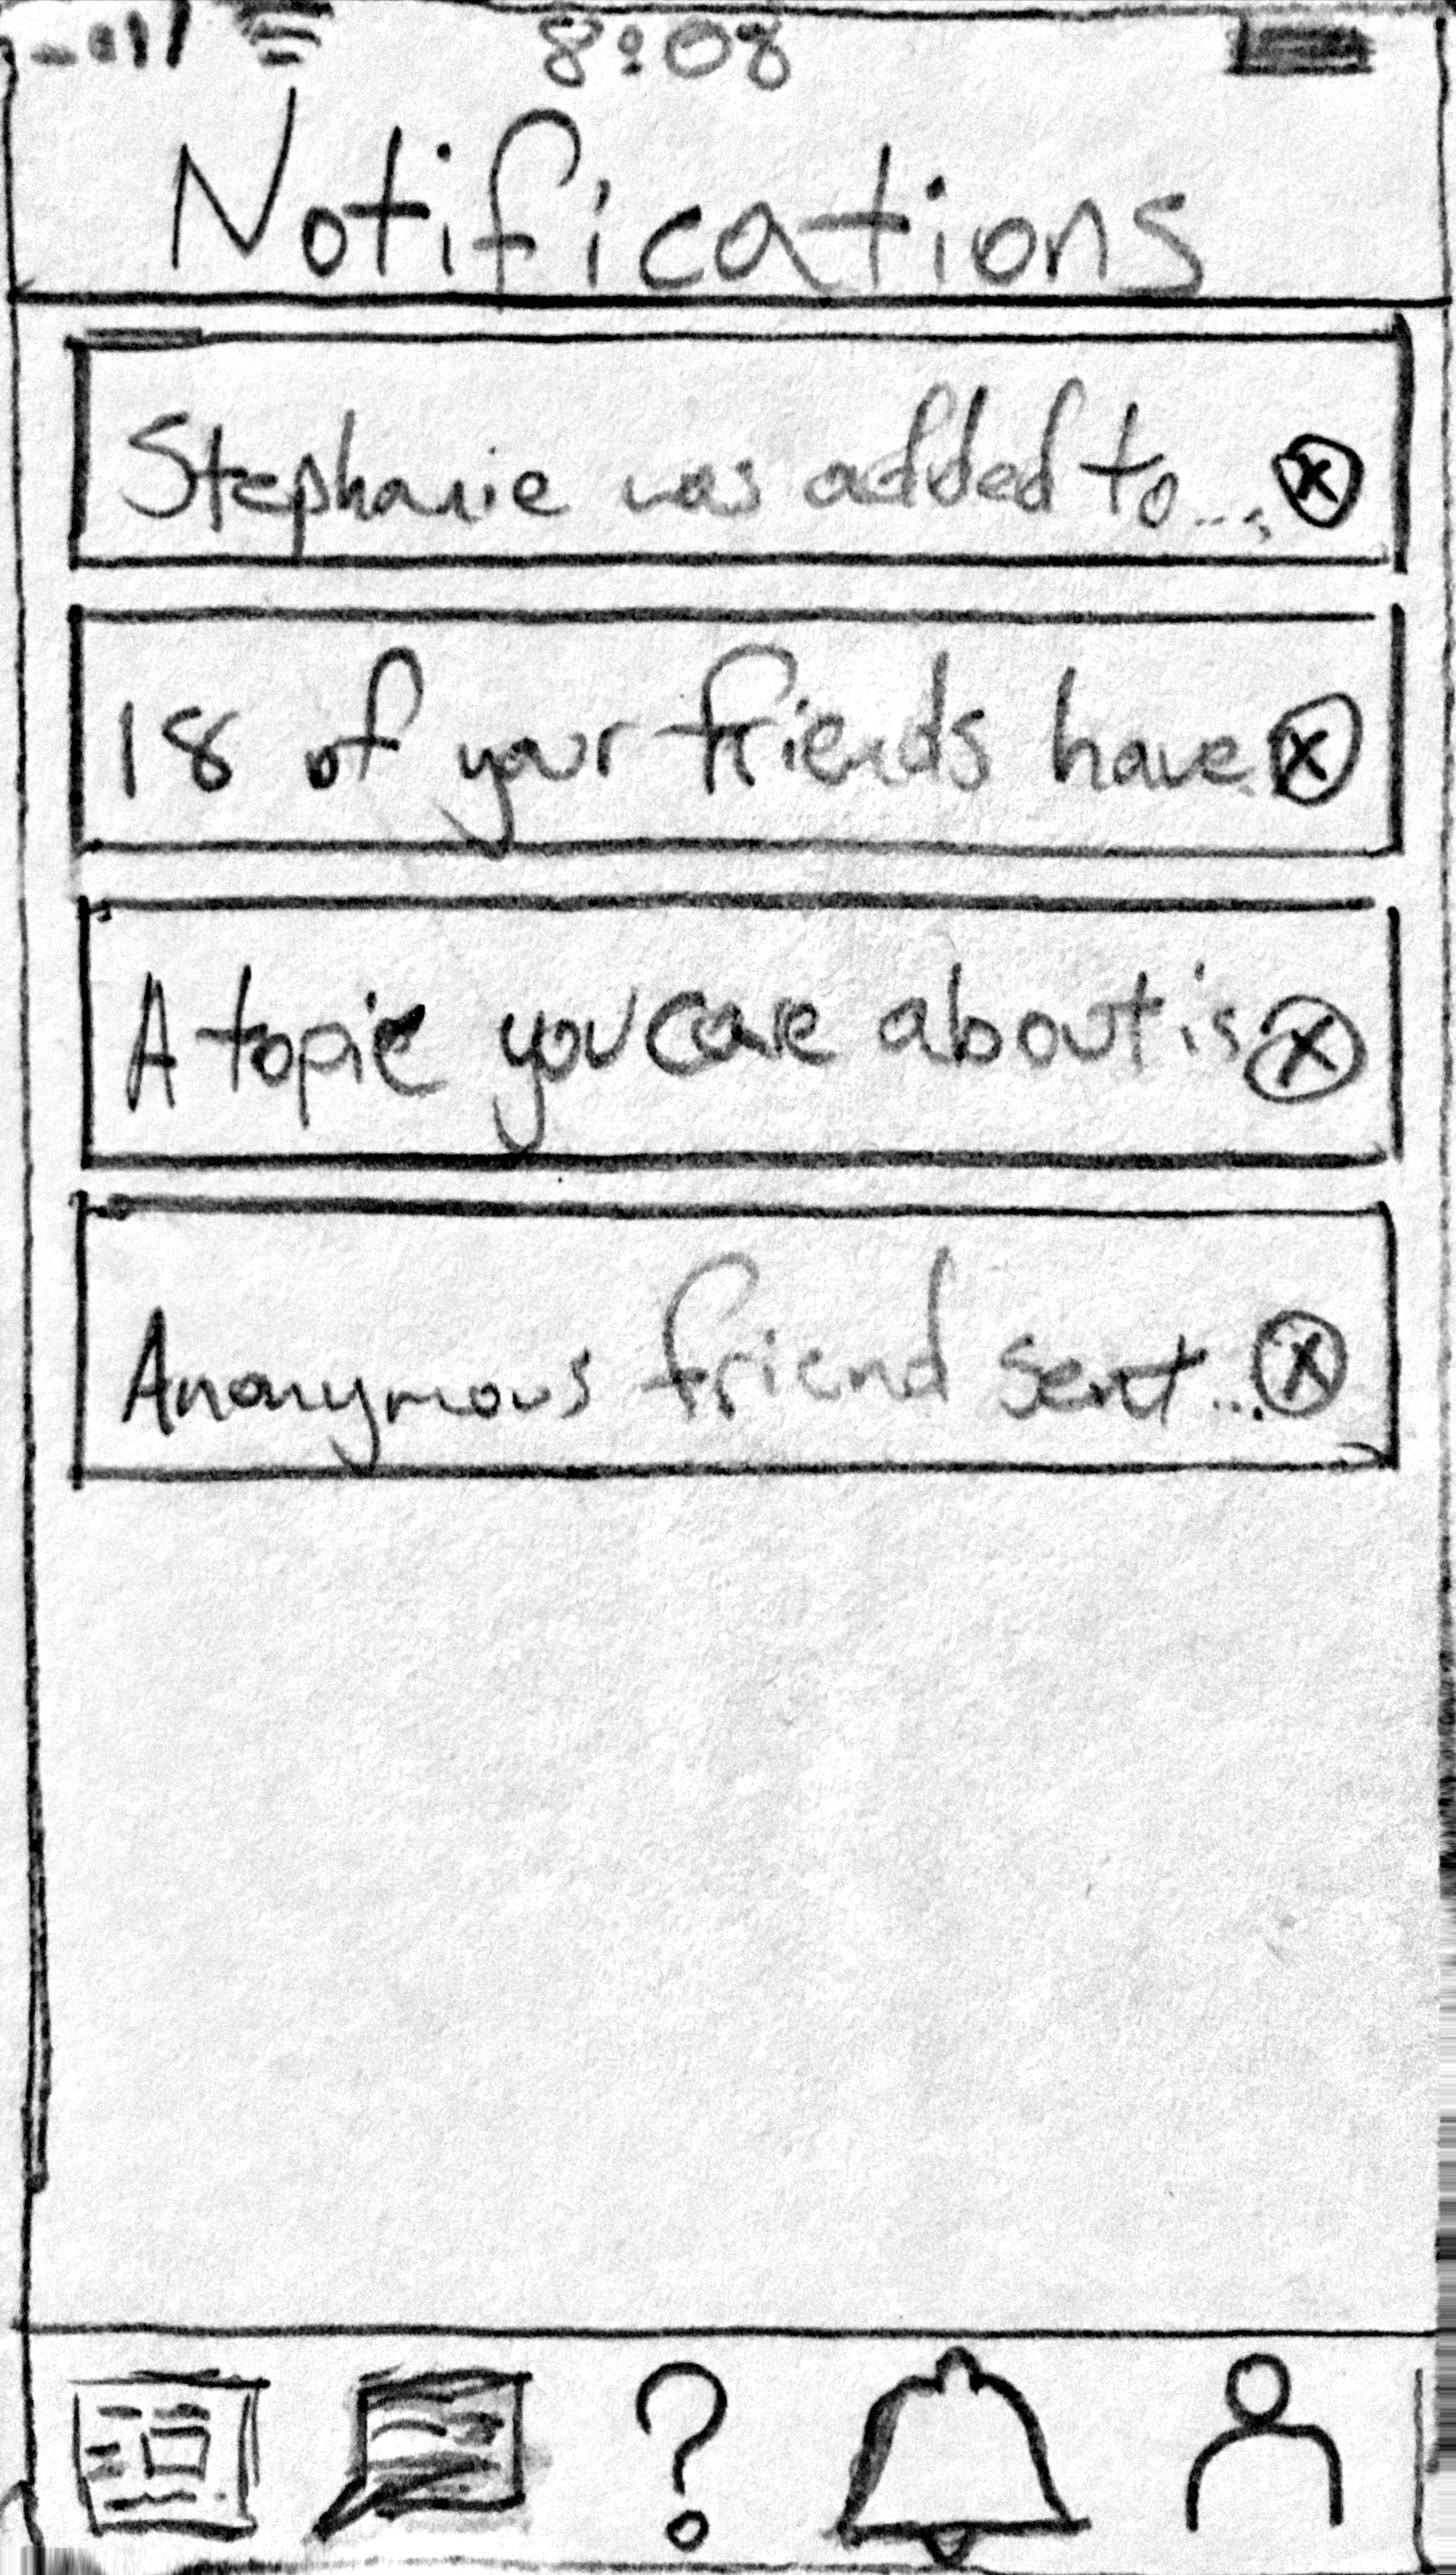 8:08
Notifications
Stephanie was added to...
18 of your friends have
A topic you care about is
Anonymous friend sent...
?